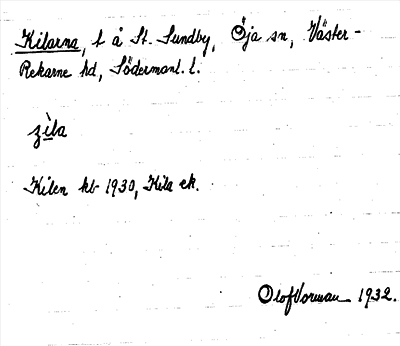 Kilarna, t å St. Sundby, Öja sn, Väster-
Rekarne hd, Södermanl. l.
Kilen kb 1930, Kila ek.
Olof Vorman 1932.